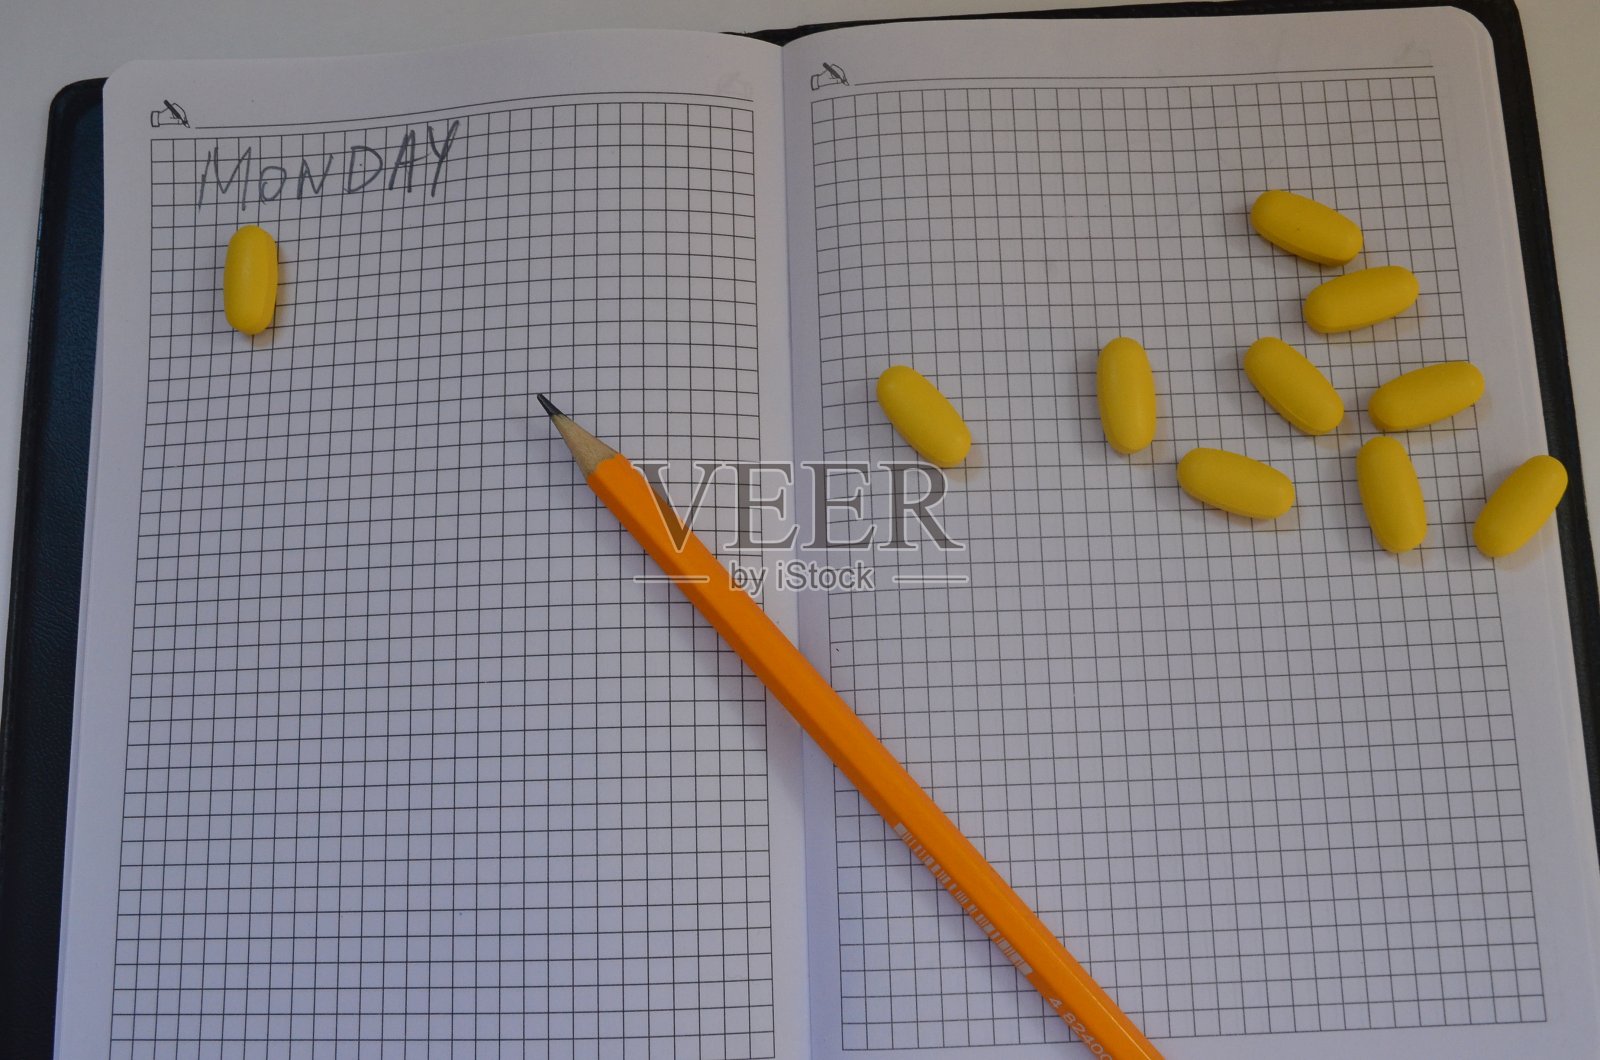 MONDAY
VEER
by iStock
4 82400